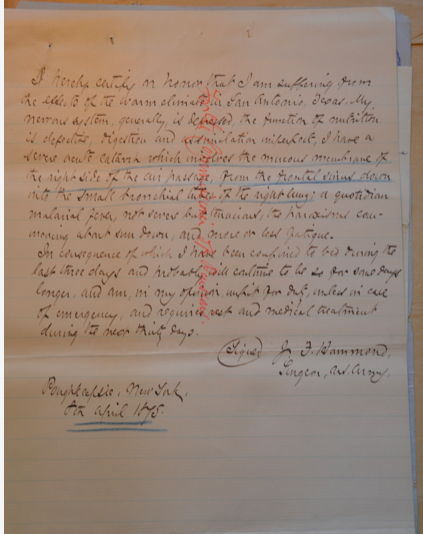 I hereby certify on honor that I am suffering from
the effects of the warm climate in San Antonio, Texas. My
nervous system, generally, is depressed, the function of nutrition
is defective, digestion and assimilation imperfect, I have a
severe acute catarrh which involves the mucous membrane of
the right side of the air passage, from the frontal sinus down
into the small bronchial tubes of the right lung; a quotidian
malarial fever, not severe but tenacious, the paroxisms com-
mencing about sun down, and more or less fatigue.
In consequence of which I have been confined to bed during the
last three days and probably will continue to be so for some days
longer, and am, in my opinion unfit for duty, unless in case
of emergency, and require rest and medical treatment
during the next thirty days.
(Signed J. F. Hammond,
Surgeon, U.S. Army.
Poughkeepsie, New York,
8th April 1875.